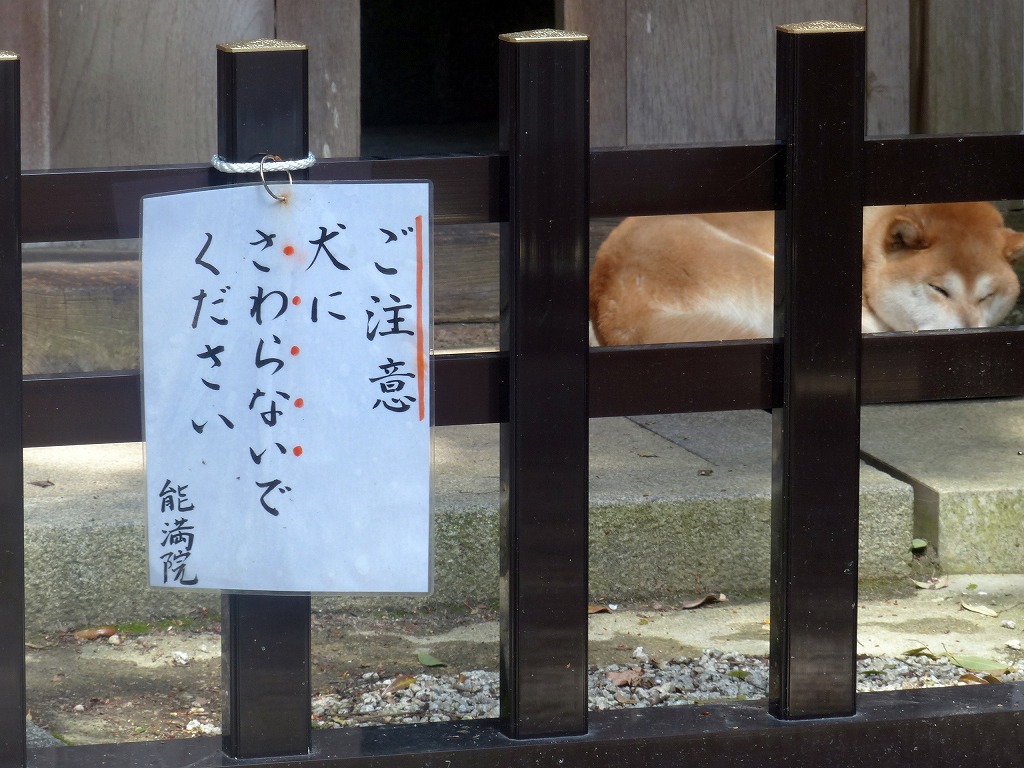 ご注意
犬に
さわらないで
ください
能満院